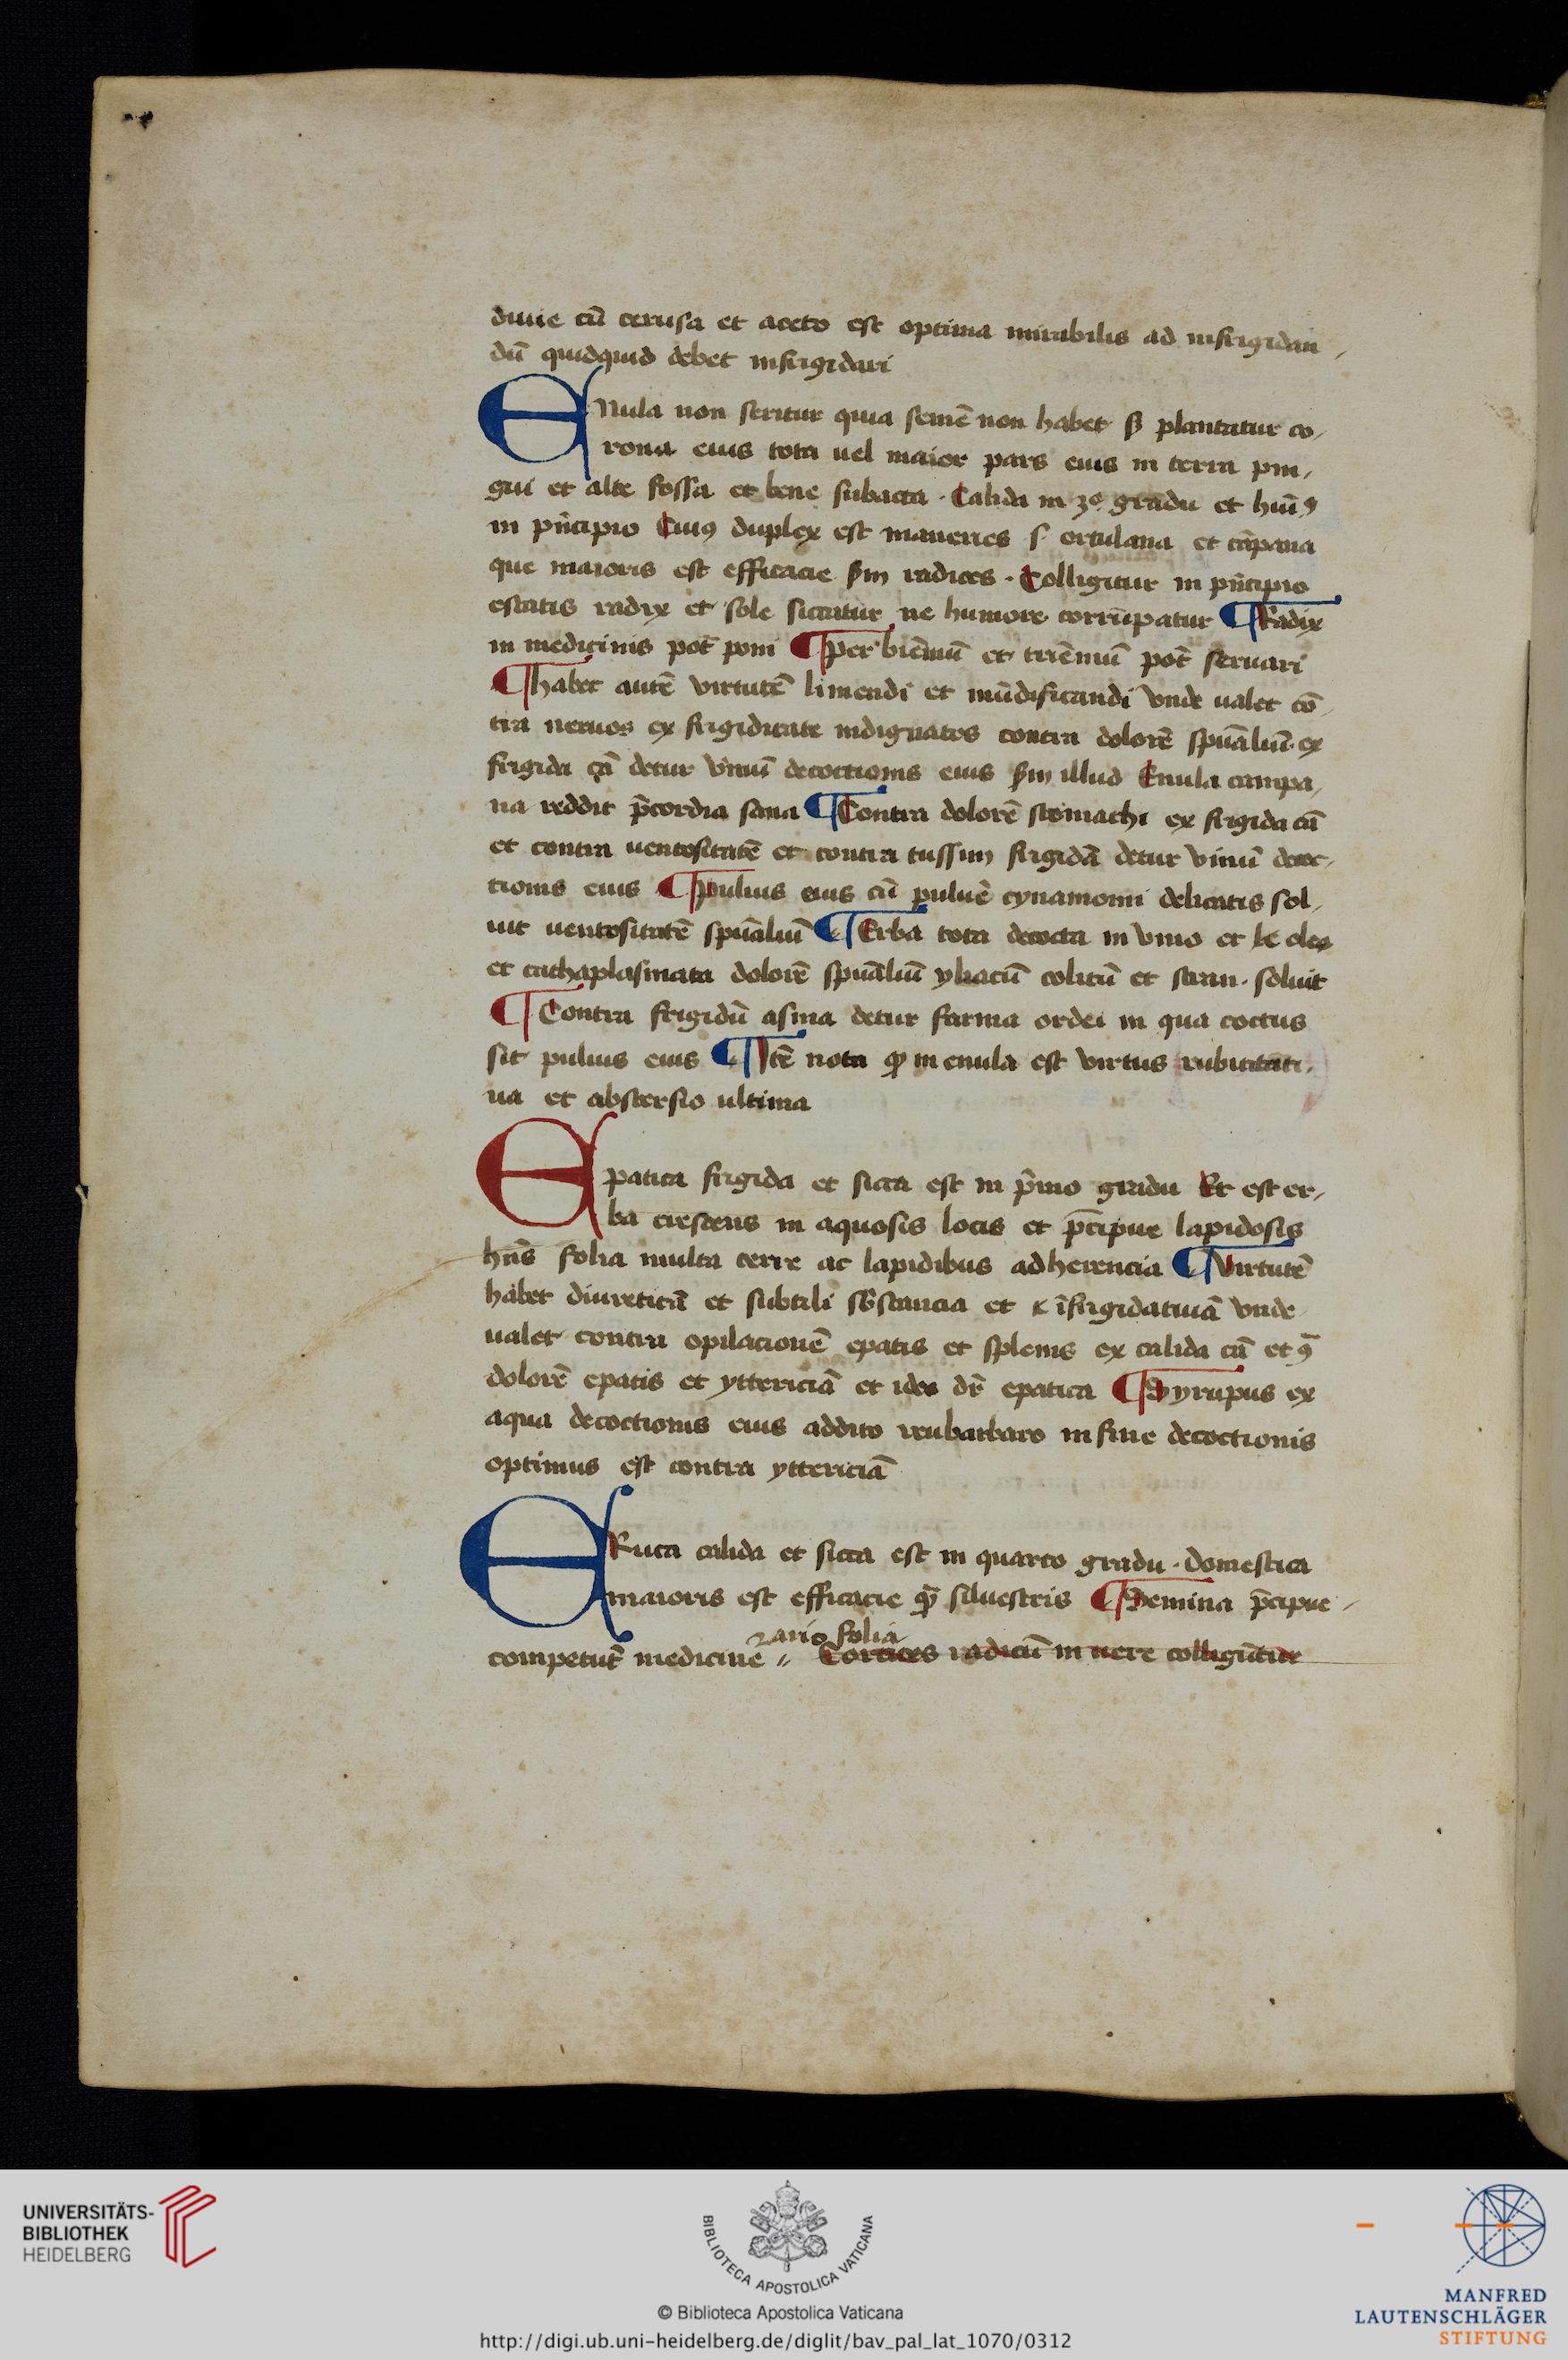 diuie cū cerusa et aceto est optima mirabilis ad infrigidan
dū quidquid debet infrigidari
ENula non seritur quia semē non habet sꝫ plantatur co,
rona eius tota uel maior pars eius in terra pin,
gui et alte fossa et bene subacta · Calida in 3º gradu et
in pⁱncipio Cuiꝰ duplex est maneries s ortulana et cāpana
que maioris est efficacie radices · Colligitur in pⁱncipio
estatis radix et sole siccatur ne humore corrūpatur ¶ Radix
in medicinis pot̄ poni ¶ per biēniū et triēniū pot̄ seruari
¶ habet autē virtutē liniendi et mūdificandi vnde ualet cō
tra neruos ex frigiditate indignatos contra dolorē spūaliū ex
frigida cā detur vinū decoctionis eius illud Enula campa,
na reddit p̄cordia sana ¶ Contra dolorē stomachi ex frigida cā
et contra uentositatē et contra tussim frigidā detur vinū decoc,
tionis eius ¶ puluis eius cū puluē cynamomi delicatis sol,
uit uentositatē spūaliū ¶ Erba tota decocta in vino et oleo
et cathaplasmata dolorē spūaliū yliacū colicū et stran · soluit
¶ Contra frigidū asma detur farina ordei in qua coctus
sit puluis eius ¶ Itē nota ꝙ in enula est virtus rubicitati,
ua et abstersio ultima
Epatica frigida et sicca est in pⁱmo gradu Et est er,
ba crescens in aquosis locis et p̄cipue lapidosis
hn̄s folia multa terre ac lapidibus adherencia ¶ Virtutē
habet diureticā et subtili sb̄stancia et īfrigidatiuā vnde
ualet contra opilacionē epatis et splenis ex calida cā et
dolorē epatis et yttericiā et ideo dr̄ epatica ¶ Syrupus ex
aqua decoctionis eius addito reubarbaro in fine decoctionis
optimus est contra yttericiā
ERuca calida et sicca est in quarto gradu · domestica
maioris est efficacie qᷓ siluestris ¶ Semina p̄cipue
folia
competūt medicine Cortices radicū in uere colligūtur
UNIVERSITÄTS-
BIBLIOTHEK
HEIDELBERG
BIBLIOTECA APOSTOLICA VATICANA
© Biblioteca Apostolica Vaticana
http://digi.ub.uni-heidelberg.de/diglit/bav_pal_lat_1070/0312
MANFRED
LAUTENSCHLÄGER
STIFTUNG